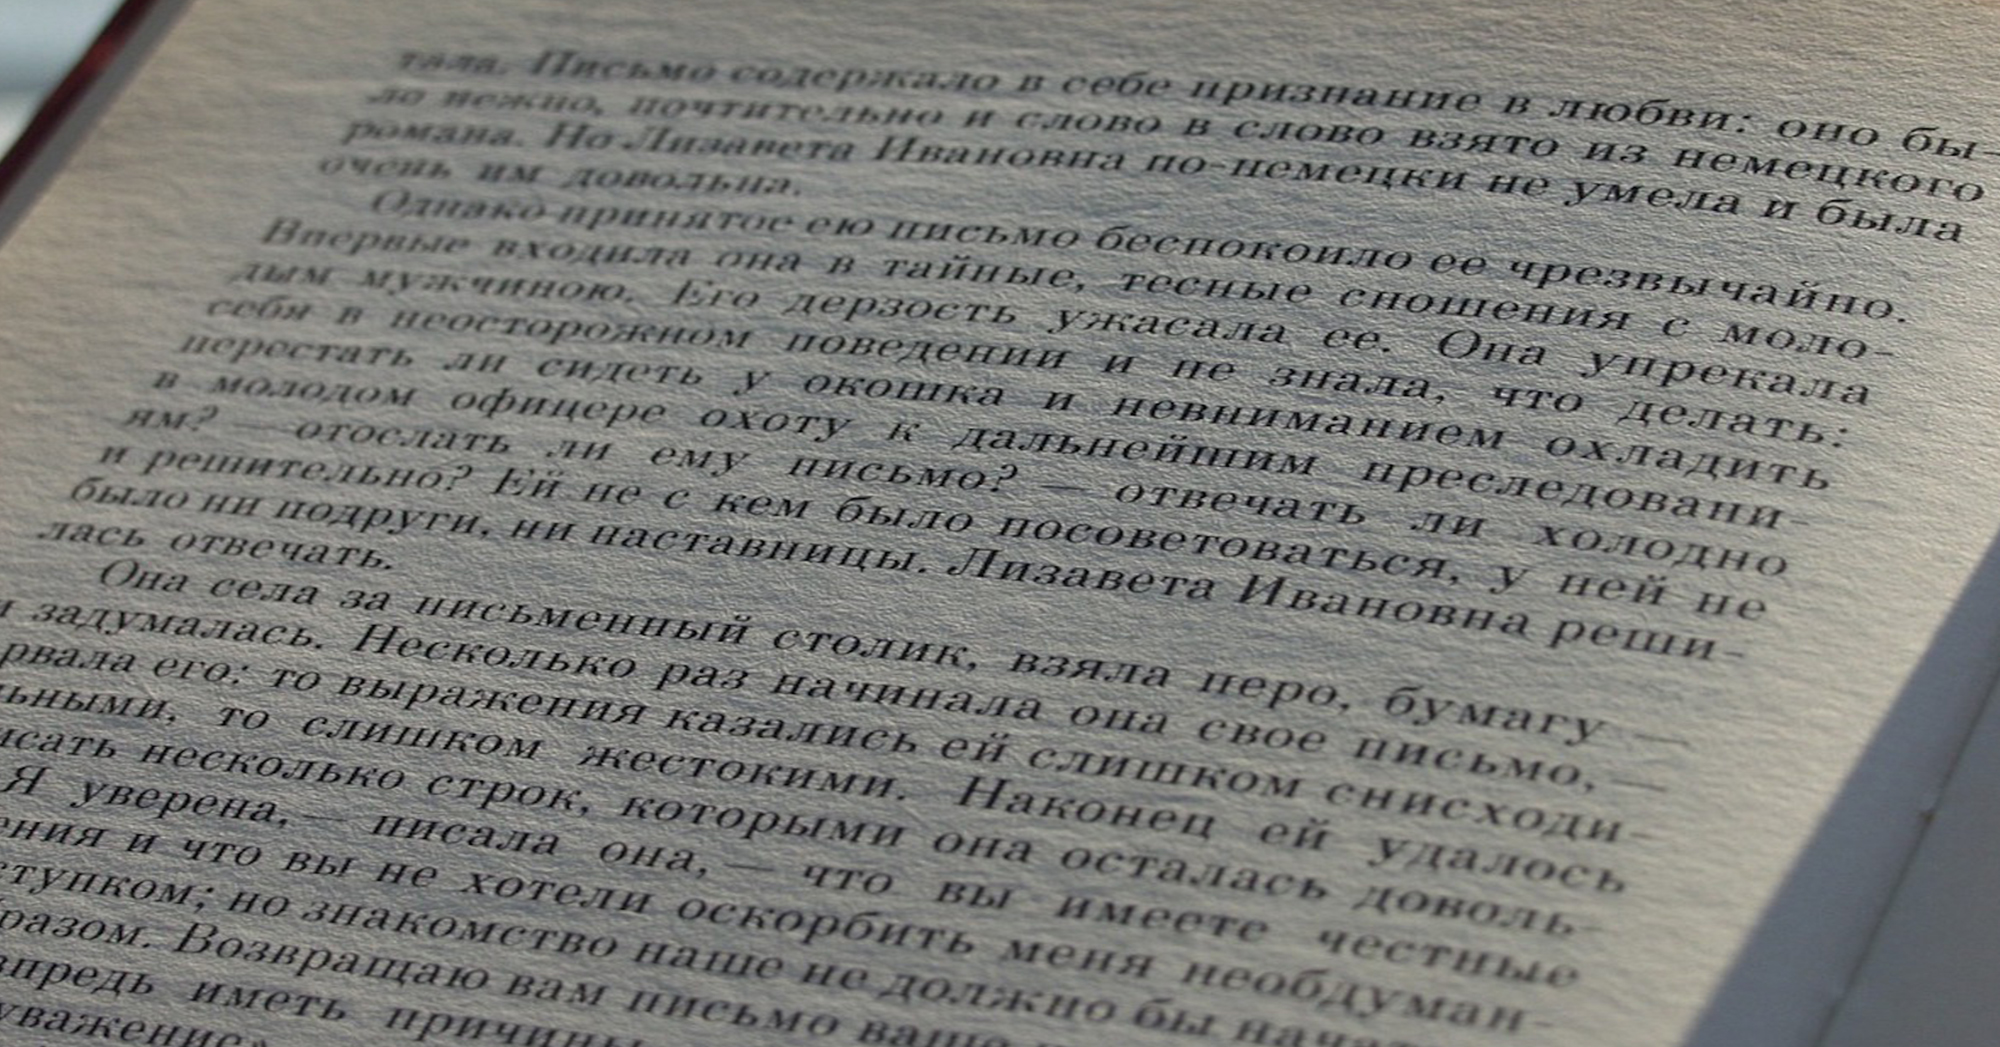 тала. Письмо содержало в себе признание в любви: оно бы-
ло нежно, почтительно и слово в слово взято из немецкого
романа. Но Лизавета Ивановна по-немецки не умела и была
очень им довольна.
Однако принятое ею письмо беспокоило ее чрезвычайно.
Впервые входила она в тайные, тесные сношения с моло-
дым мужчиною. Его дерзость ужасала ее. Она упрекала
себя в неосторожном поведении и не знала, что делать:
перестать ли сидеть у окошка и невниманием охладить
в молодом офицере охоту к дальнейшим преследовани-
ям? — отослать ли ему письмо? — отвечать ли холодно
и решительно? Ей не с кем было посоветоваться, у ней не
было ни подруги, ни наставницы. Лизавета Ивановна реши-
лась отвечать.
Она села за письменный столик, взяла перо, бумагу —
и задумалась. Несколько раз начинала она свое письмо, —
рвала его: то выражения казались ей слишком снисходи-
льными, то слишком жестокими. Наконец ей удалось
исать несколько строк, которыми она осталась доволь-
Я уверена, — писала она, — что вы имеете честные
ения и что вы не хотели оскорбить меня необдуман-
ступком; но знакомство наше не должно бы начат
бразом. Возвращаю вам письмо ваше
впредь иметь причины
уважение»